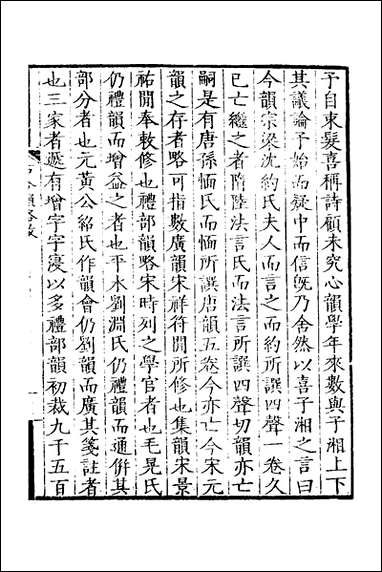 予自束髮喜稱詩顧未究心韻學年來數與子湘上下
其議論予始而疑中而信旣乃舍然以喜子湘之言曰
今韻宗梁沈約氏夫人而言之而約所譔四聲一卷久
已亡繼之者隋陸法言氏而法言所譔四聲切韻亦亡
嗣是有唐孫愐氏而愐所譔唐韻五卷今亦亡今宋元
韻之存者略可指數廣韻宋祥符閒所修也集韻宋景
祐閒奉敕修也禮部韻略宋時列之學官者也毛晃氏
仍禮韻而增益之者也平水劉淵氏仍禮韻而通倂其
部分者也元黃公紹氏作韻會仍劉韻而廣其箋註者
也三家者遞有增字字寖以多禮部韻初裁九千五百